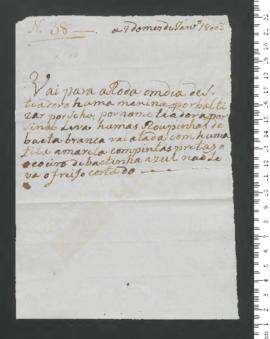 N. 58
a 7 do mes de Janr.o
Vai para a Roda em dia de S.
Teadoro huma menina por bati
zar por se ho, por nome teadora por
sinal Leva humas Roupinhas de
baeta branca vai atada com huma
fita amarela com pintas pretas o
o coeiro de baetinha azul não le
va o freiso cortado